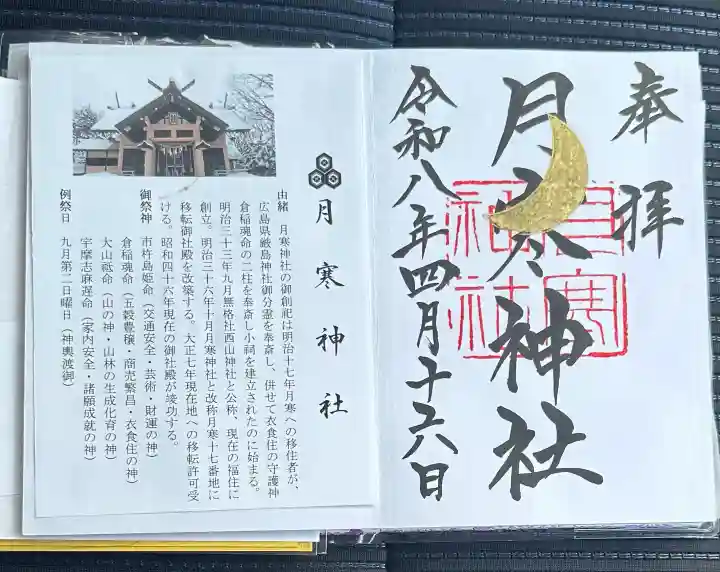 奉拝
月寒神社
月寒神社
令和八年四月十六日
月寒神社
由緒 月寒神社の御創祀は明治十七年月寒への移住者が、
広島県厳島神社御分霊を奉斎し、併せて衣食住の守護神
倉稲魂命の二柱を奉斎し小祠を建立されたのに始まる。
明治三十三年九月無格社西山神社と公称、現在の福住に
創立。明治三十六年十月月寒神社と改称月寒十七番地に
移転御社殿を改築する。大正七年現在地への移転許可受
ける。昭和四十六年現在の御社殿が竣功する。
御祭神 市杵島姫命(交通安全・芸術・財運の神)
倉稲魂命(五穀豊穣・商売繁昌・衣食住の神)
大山祗命(山の神・山林の生成化育の神)
宇摩志麻遅命(家内安全・諸願成就の神)
例祭日 九月第二日曜日(神輿渡御)